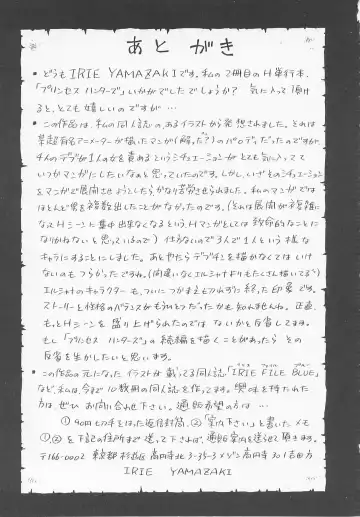 あとがき
・どうもIRIE YAMAZAKIです。私の2冊目のH単行本、
「プリンセス ハンターズ」いかがでしたでしょうか? 気に入って頂け
ると、とても嬉しいのですが…
・この作品は、私の同人誌の、あるイラストから発想されました。それは
某超有名アニメーターが描いたマンガ(解った?)のパロディだったのですが、
4人のデブが1人の女を責めるというシチュエーションがとても気に入ってて
いつかマンガにしたいなぁと思っていたのです。しかし、いざそのシチュエーション
をマンガで展開させようとしたらかなり苦労させられました。私のマンガでは
ほとんど男を複数出したことがなかったのです。(それは展開が複雑に
なってHシーンに集中出来なくなるというHマンガとしては致命的なことに
なりかねないと思っているので) 仕方ないので3人で1人という様な
キャラにすることにしました。あとやたらデブチンを描かなくてはいけ
ないのもつらかったですね。(間違いなくエルシャナよりもたくさん描いてるゾ)
エルシャナのキャラクターも、ついにつかまえられずに終った印象です。
ストーリーと性格のバランスがもうひとつだったかも知れませんね。正直、
もっとHシーンを盛り上げられたのではないかと反省してます。
もし「プリンセス ハンターズ」の続編を描くことがあったらその
反省を生かしたいと思います。
・この作品の元になったイラストが載ってる同人誌「IRIE FILE BLUE」
など、私は今まで10数冊の同人誌を作ってます。興味を持たれた
方は、ぜひお問い合わせ下さい。通販希望の方は…
①90円切手をはった返信封筒、②「案内下さい」と書いたメモ
①②を下記の住所まで送って下されば、通販案内を送らせて頂きます。
〒166-0002 東京都杉並区高円寺北3-35-3メゾン高円寺301吉田方
IRIE YAMAZAKI